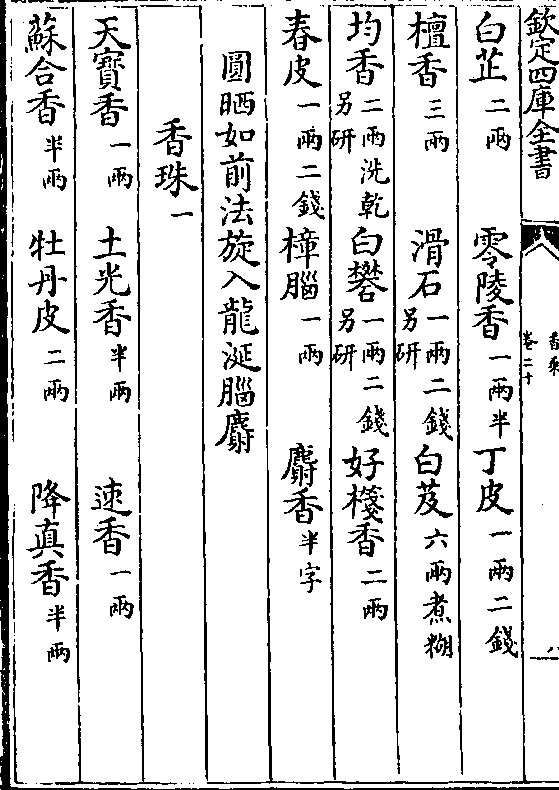 欽定四庫全書
香乘
卷二十
八
白芷二兩 零陵香一兩半 丁皮一兩二錢
檀香三兩 滑石一兩二錢另研 白芨六兩煮糊
均香二兩洗乾另研 白礬一兩二錢另研 好棧香二兩
春皮一兩二錢 樟腦一兩 麝香半字
圓晒如前法旋入龍涎腦麝
香珠一
天寶香一兩 土光香半兩 速香一兩
蘇合香半兩 牡丹皮二兩 降真香半兩